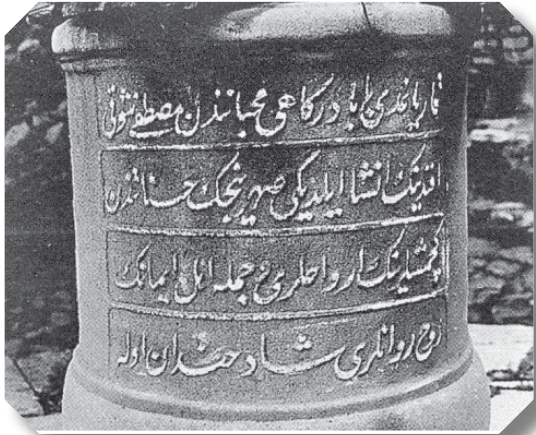 قاریاغدی بابا درکاهی محبانندن مصطفی شوقی
افندینك انشا ایلدیکی صهرینجك حسناتندن
کچمشلرینك ارواحلری و جمله اهل ایمانك
روح روانلری شاد خندان اوله